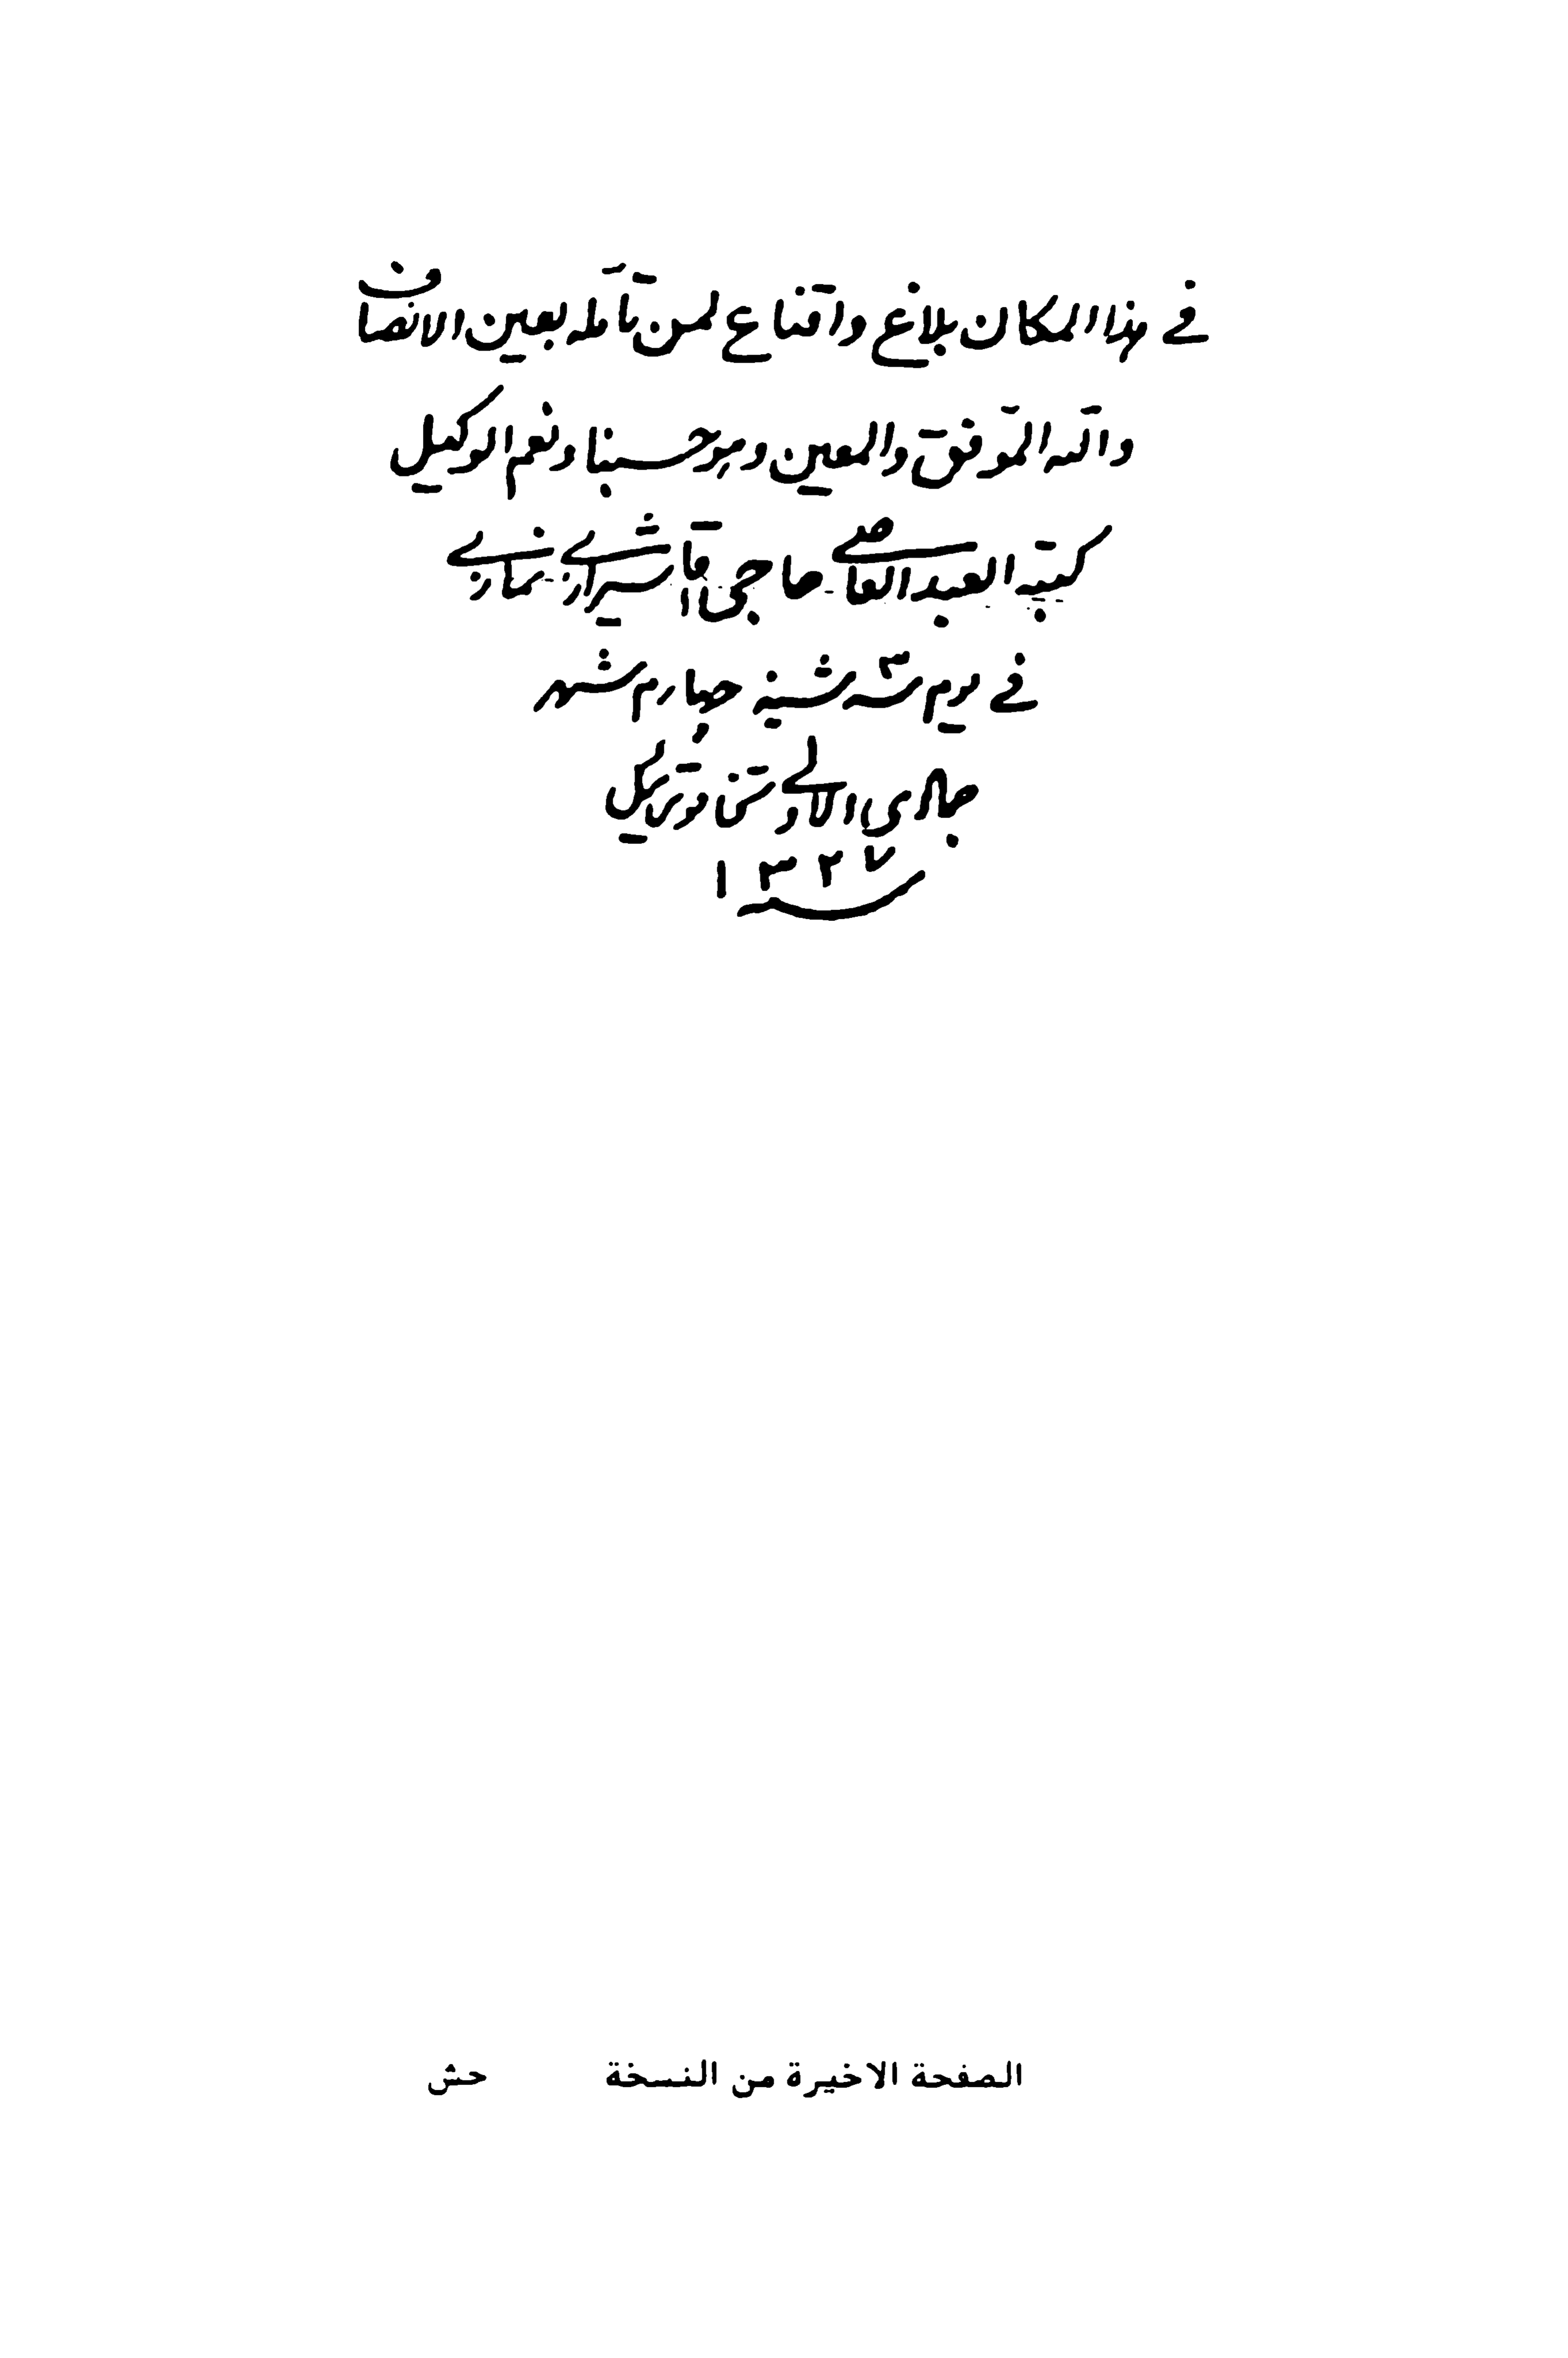 في هذا المكان بلاغ واقناع لمن تأمله بعين الانصاف
والله الموفق والمعين وهو حسبنا ونعم الوكيل
كتبه العبد العاصي حاجي آقا شيرازي
في يوم ٣ شنبه چهارم شهر
جمادي الاولى من توشقان ئيل
١٣٣٧
الصفحة الاخيرة من النسخة حش